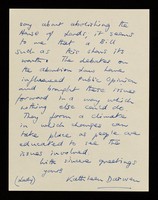 say about abolishing the
House of Lords, it seems
to me that a Bill
such as this shows its
worth. The debates on
the abortion laws have
influenced public opinion
and brought these issues
forward in a way which
nothing else could do.
They form a climate
in which changes can
take place as people are
educated to see the
issues involved.
With sincere greetings
yours
(Lady) Kathleen